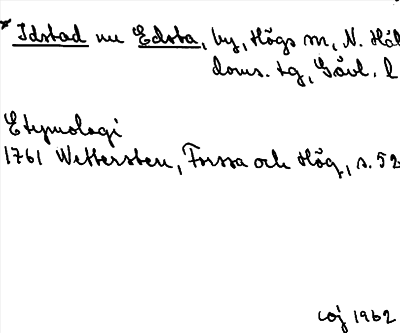 *Idstad nu Edsta, by, Högs sn, N. Häl
doms. tg, Gävl. l
Etymologi
1761 Wettersten, Forssa och Hög, s. 52
coj 1962